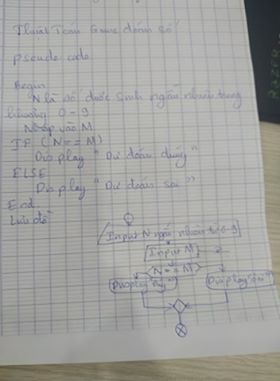 Thuật Toán Game đoán số
Pseudo code
Begin
N là số được sinh ngẫu nhiên trong
khoảng 0 - 9
Nhập vào M
IF (N == M)
Display "Dự đoán đúng"
ELSE
Display "Dự đoán sai"
End
Lưu đồ
Input N ngẫu nhiên từ 0-9
Input M
N == M
Display "đúng"
Display "sai"